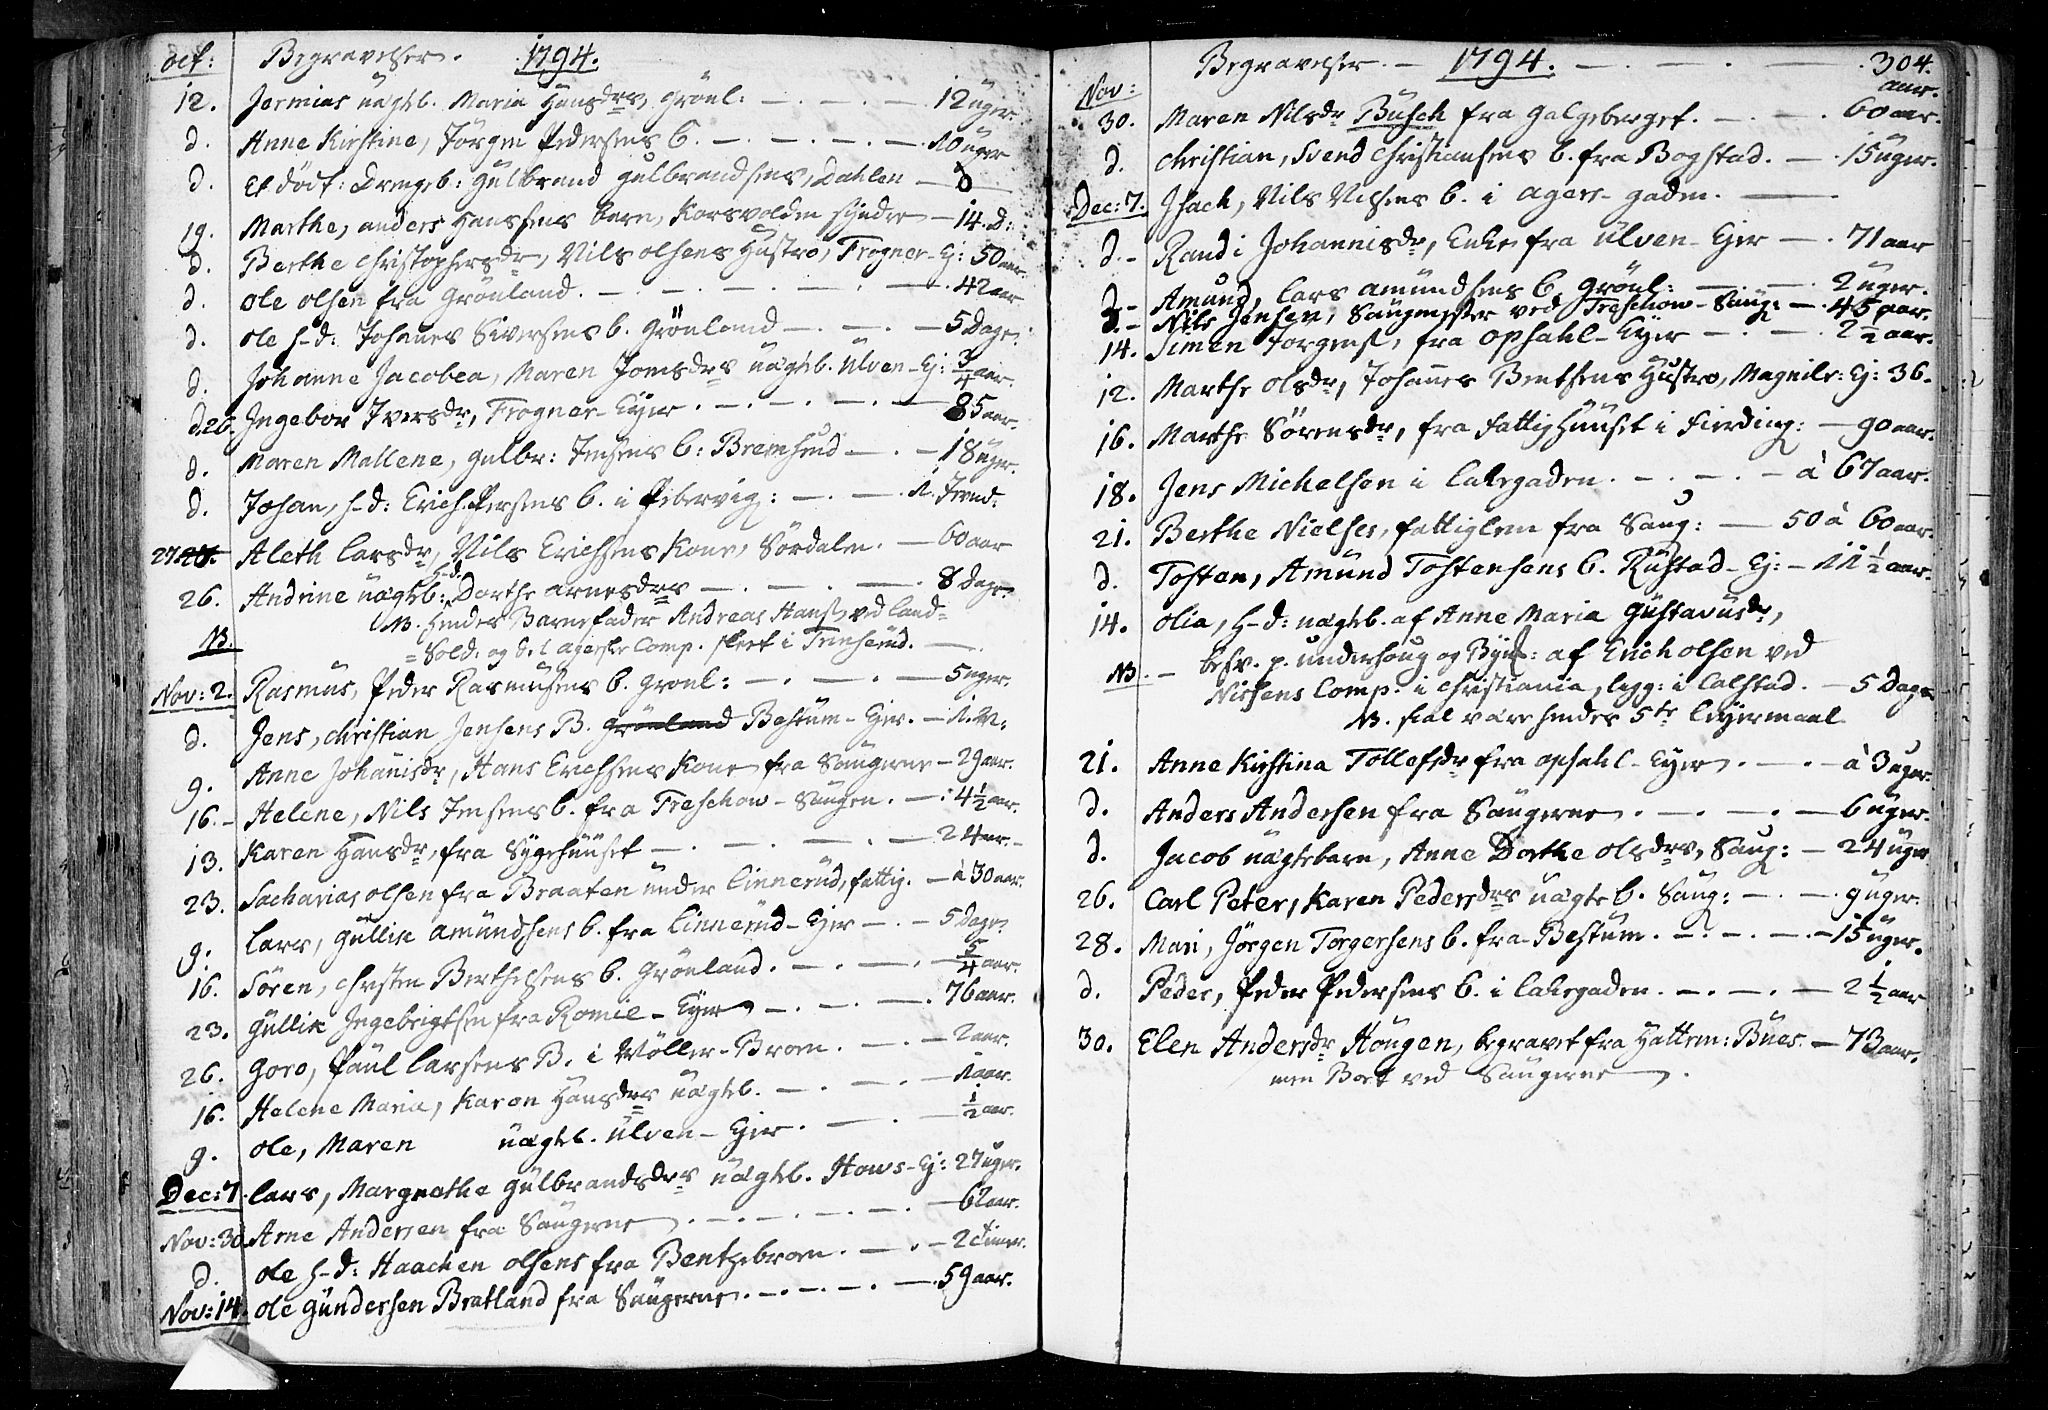 oct: Begravelser. 1794.
12. Jermias uægteb. Maria Hansdrs, Grönl: 12 uger.
d. Anne Kirstine, Jörgen Pedersens b. 10 uger
d. Et död: Drengeb: Gulbrand Gulbrandsens, Dahlen 0
19. Marthe, anders Hanssens barn, Korsvolden syndre 14. D:
d. Berthe Christophersdr, Nils olsens Hustro, Frogner-Ej: 50 aar.
d. ole olsen fra Grönland. 42 aar
d. ole h-d: Johanes Siversens b. Grönland 5 Dage.
d. Johanne Jacobea, Maren Jonsdrs uægteb. Ulven-Ej: 3/4 aar.
d. 26. Ingebor Iversdr, Frogner-Eyer. 85 aar.
d. Maren Mallene, Gulbr: Jensens b: Bremsrud 18 uger.
d. Johan, h-d: Erich Persens b. i Pebervig:
27. Aleth Larsdr, Nils Erichsens Kone, Sördalen. 60 aar
26. Andrine uægteb: h-d. Dorthe Arnesdrs 8 Dage.
NB. NB. Hendes Barnefader Andreas Hans. ved Land-
Sold. og d. 1 agerske Comp. skeet i
Nov: 2. Rasmus, Peder Rasmussens b. Gronl: 5 uger.
d. Jens, Christian Jensens B. Grönland Bestum-Ejer. 1. M:
9. Anne Johanisdr, Hans Erichsens Kone fra Saugerne 29 aar.
16. Helene, Nils Jensens b. fra Treschow-Saugen. 4 1/2 aar.
13. Karen Hansdr, fra Sygehuuset 24 aar.
23. Sacharias olsen fra Braaten under Linnerud, fattig. à 30 aar.
9. Lars, Gullik Amundsens b. fra Linnerud-Ejer 5 Dage.
16. Sören, Chrsten Berthelsens b. Grönland. 5/4 aar.
23. Gullik Ingebrigtsen fra Romle-Eyer 76 aar.
26. Goro, Paul Larsens B. i Möller-Broen. 2 aar.
16. Helene Maria, Karen Hansdrs uægteb. 1 aar.
9. ole, Maren uægteb. Ulven-Ejer. 1/2 aar.
Dec: 7. Lars, Margrethe Gulbrandsdrs uægteb. Hovs-Ej: 27 uger.
Nov: 30. Arne Andersen fra Saugerne 62 aar.
d. ole h-d: Haachen olsens fra Bentzebroen. 2 timer.
Nov: 14. ole Gundersen Bratland fra Saugerne. 59 aar.
Begravelser. 1794. 304.
Nov: aar.
30. Maren Nilsdr Busch fra Galgeberget. 60 aar.
d. Christian, Svend Christiansens b. fra Bogstad. 15 uger.
Dec: 7. Isach, Nils Nilsens b. i Agers-gaden.
d. Randi Johannisdr, Enke fra Ulven-Ejer 71 aar
d. Amund, Lars Amundsens b. Grönl: 2 uger.
d. Nils Jensen, Saugmester ved Treschow-Saug: 45 aar.
14. Simen Jorgens. fra Opsahl-Eyer 2 1/2 aar.
12. Marthe Olsdr, Johanes Bentsens Hustro, Magnils: Ej: 36.
16. Marthe Sörensdr, fra Fattighuuset i Fierding: 90 aar.
18. Jens Michelsen i Lakegaden. à 67 aar.
21. Berthe Nielses, fattiglem fra Saug: 50 à 60 aar.
d. Tosten, Amund Tostensens b. Rustad-Ej: 11 1/2 aar.
14. olia, h-d: uægteb. af Anne Maria Gustavusdr,
NB. besv. p. undersoug og af Erich olsen ved
Nissens Comp. i Christiania, ligg: i Calstad. 5 Dage
NB. skal være hendes 5te Leyermaal
21. Anne Kirstina Tollefsdr fra opsahl-Eyer. à 3 uger.
d. Anders Andersen fra Saugerne. 6 uger.
d. Jacob uægtebarn, Anne Dorthe olsdrs, Saug: 24 uger
26. Carl Peter, Karen Pedersdrs uægte b. Saug: 9 uger.
28. Mari, Jörgen Torgersens b. fra Bestum. 15 uger.
d. Peder, Peder Pedersens b. i Lakegaden. 2 1/2 aar
30. Elen Andersdr Hougen, begravet fra Hattem: Bues. 73 aar.
men Boet ved Saugerne.